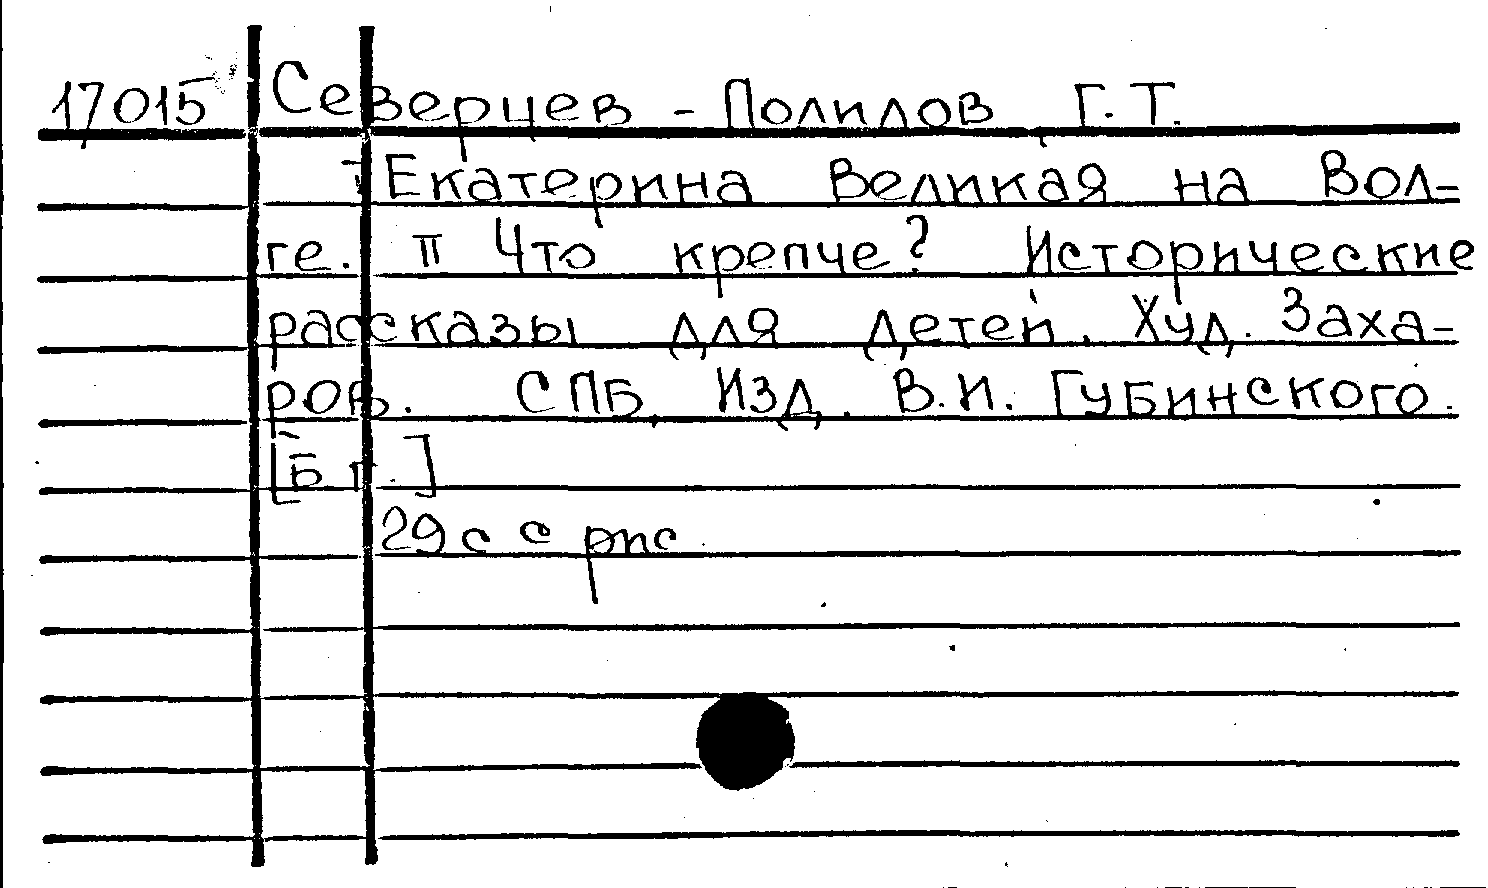 17015 Северцев - Полилов Г.Т.
Екатерина Великая на Вол-
ге. II Что крепче? Исторические
рассказы для детей. Худ. Заха-
ров. СПБ, Изд. В.И. Губинского.
[Б г.]
29 с с рис.